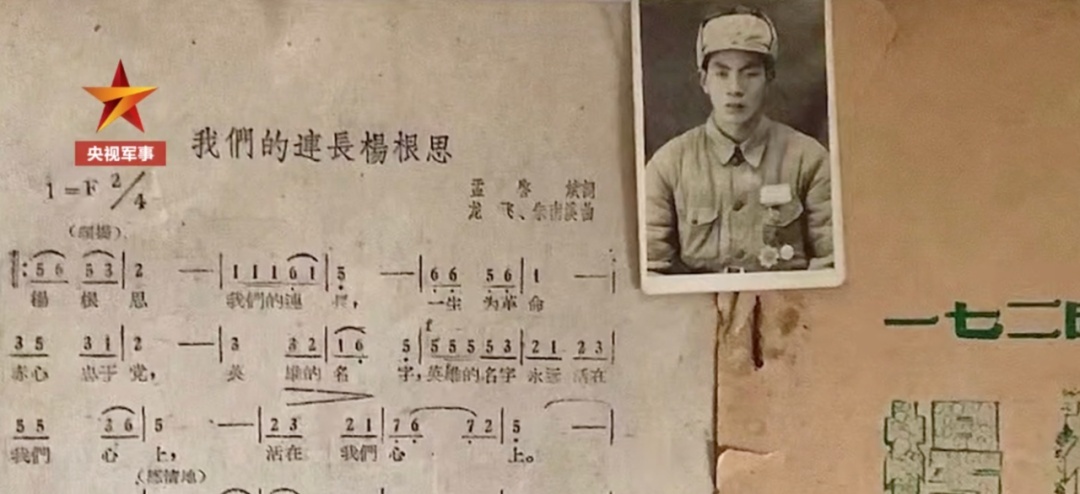 央视军事
我們的連長楊根思
1=F 2/4
龙飞、朱南溪曲
(頌揚)
5 6 5 3 2 — 1 1 1 6 1 5 — 6 6 5 6 1 —
楊 根 思 我們的連 長, 一生 为革 命
3 5 3 1 2 — 3 3 2 1 6 5 5 5 5 5 3 2 1 2 3
f
赤心 忠于 党, 英 雄的 名 字, 英雄的名字 永远 活在
5 5 3 6 5 — 2 3 2 1 7 6 7 2 5 —
我們 心 上, 活在 我們 心 上。
一七二